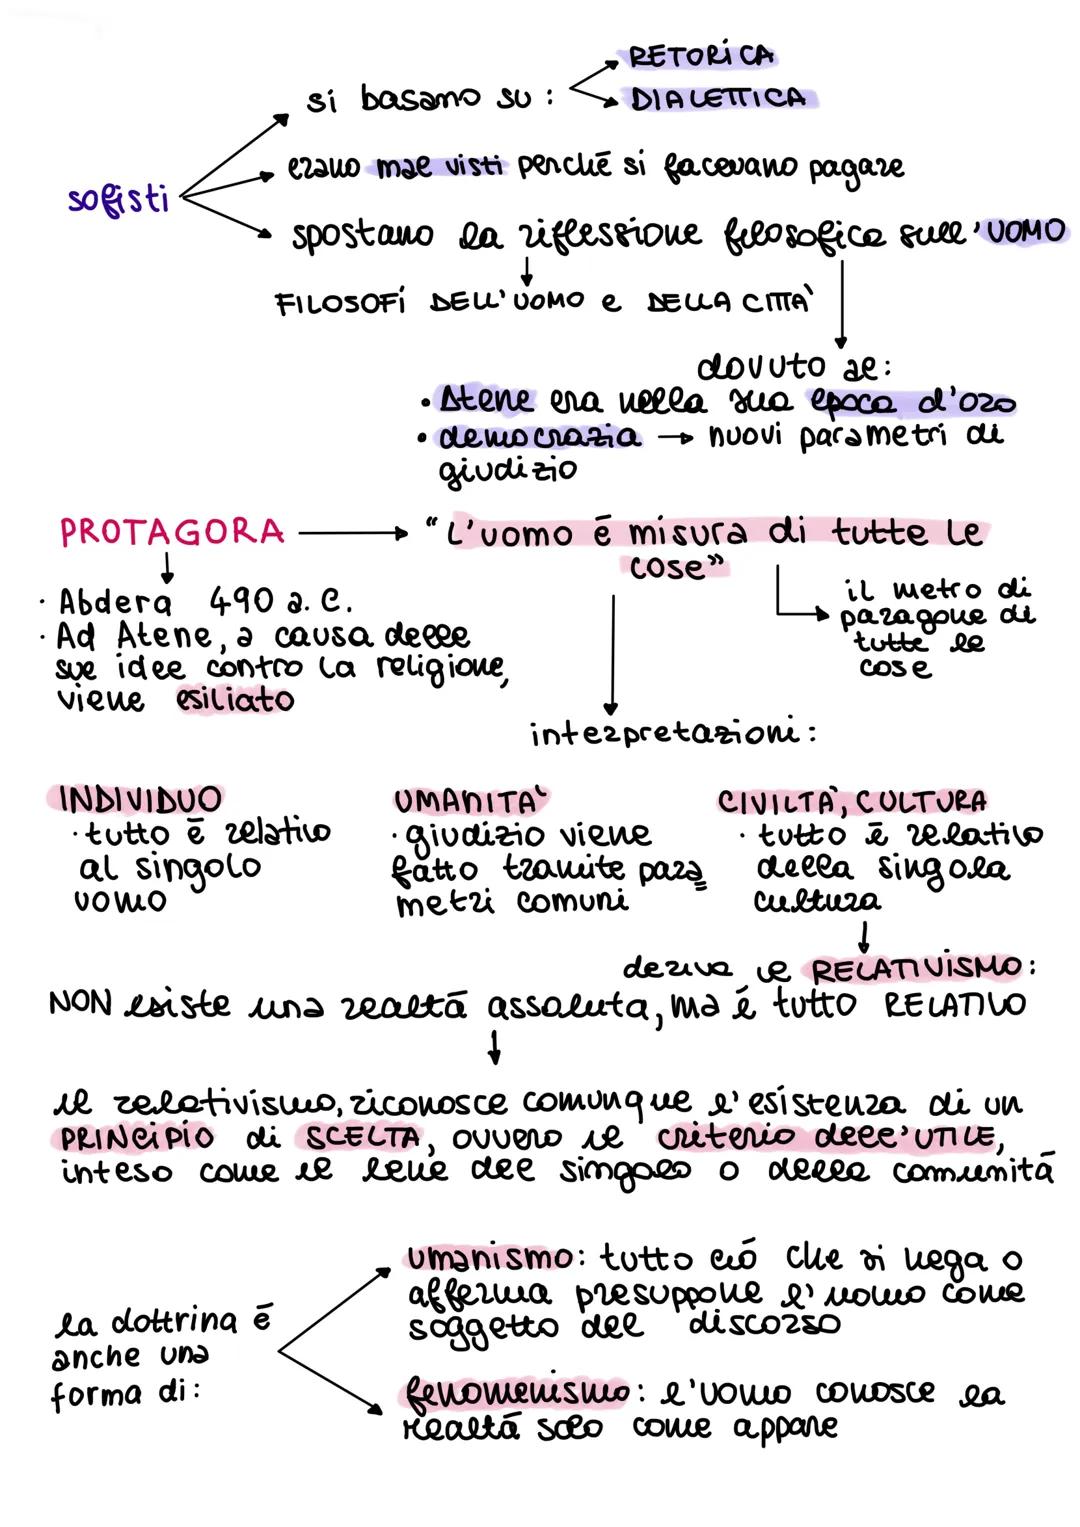 RETORICA
si basano su:
DIALETTICA
erano mal visti perché si facevano pagare
sofisti
spostano la riflessione filosofica sull'UOMO
FILOSOFI DELL'UOMO e DELLA CITTÀ
dovuto al:
• Atene era nella sua epoca d'oro
• democrazia → nuovi parametri di
giudizio
PROTAGORA → "L'uomo é misura di tutte le
cose"
il metro di
paragone di
tutte le
cose
· Abdera 490 a.C.
· Ad Atene, a causa delle
sue idee contro la religione,
viene esiliato
interpretazioni:
INDIVIDUO
· tutto é relativo
al singolo
uomo
UMANITA'
· giudizio viene
fatto tramite para
metri comuni
CIVILTA', CULTURA
· tutto é relativo
della singola
cultura
deriva il RELATIVISMO:
NON esiste una realtá assoluta, ma é tutto RELATIVO
il relativismo, riconosce comunque l'esistenza di un
PRINCIPIO di SCELTA, ovvero il criterio dell'UTILE,
inteso come il bene del singolo o della comunitá
umanismo: tutto ció che si nega o
afferma presuppone l'uomo come
soggetto del discorso
la dottrina é
anche una
forma di:
fenomenismo: l'uomo conosce la
realtá solo come appare